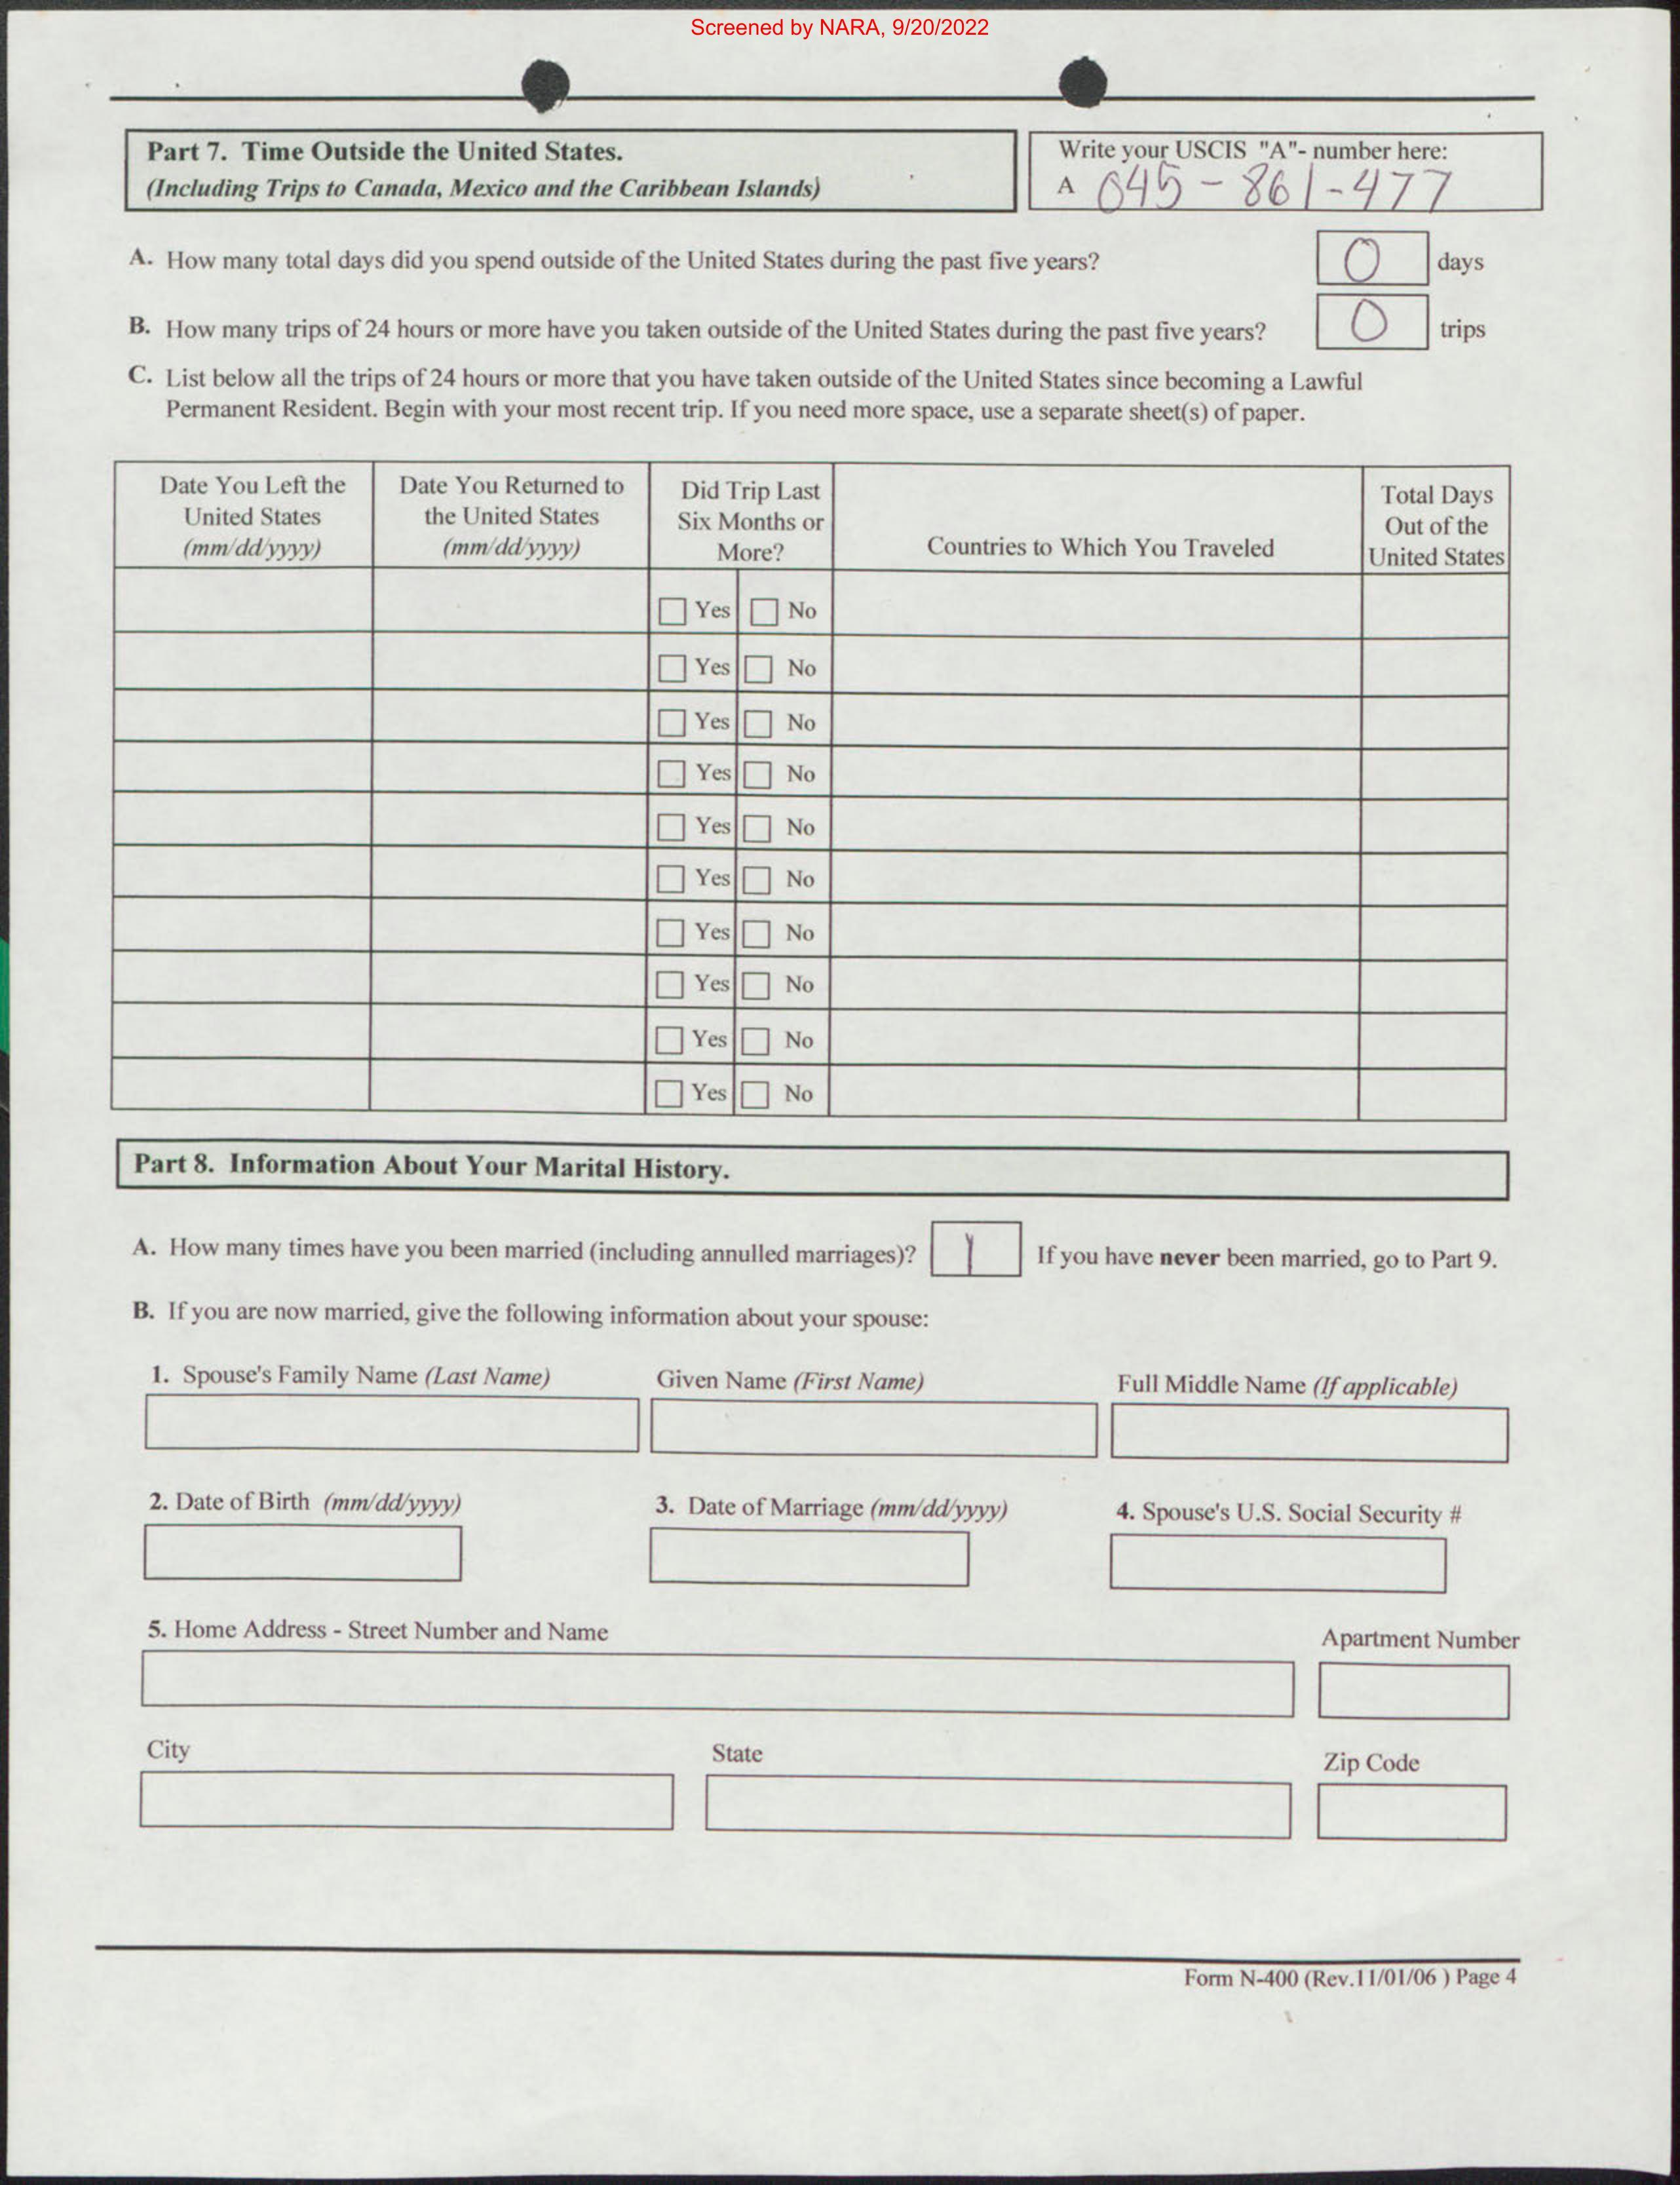 Screened by NARA, 9/20/2022
Part 7. Time Outside the United States.
(Including Trips to Canada, Mexico and the Caribbean Islands)
Write your USCIS "A"- number here:
A 045-861-477
A. How many total days did you spend outside of the United States during the past five years? 0 days
B. How many trips of 24 hours or more have you taken outside of the United States during the past five years? 0 trips
C. List below all the trips of 24 hours or more that you have taken outside of the United States since becoming a Lawful
Permanent Resident. Begin with your most recent trip. If you need more space, use a separate sheet(s) of paper.
Date You Left the
United States
(mm/dd/yyyy)
Date You Returned to
the United States
(mm/dd/yyyy)
Did Trip Last
Six Months or
More?
Countries to Which You Traveled
Total Days
Out of the
United States
Yes No
Yes No
Yes No
Yes No
Yes No
Yes No
Yes No
Yes No
Yes No
Yes No
Part 8. Information About Your Marital History.
A. How many times have you been married (including annulled marriages)? 1 If you have never been married, go to Part 9.
B. If you are now married, give the following information about your spouse:
1. Spouse's Family Name (Last Name) Given Name (First Name) Full Middle Name (If applicable)
2. Date of Birth (mm/dd/yyyy) 3. Date of Marriage (mm/dd/yyyy) 4. Spouse's U.S. Social Security #
5. Home Address - Street Number and Name Apartment Number
City State Zip Code
Form N-400 (Rev.11/01/06 ) Page 4